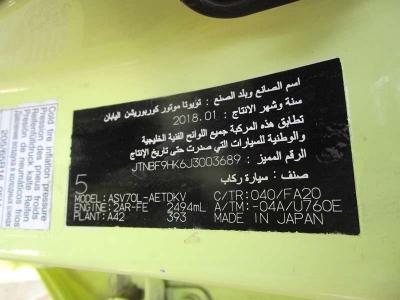 Cold tire inflation pressure
Pression des pneus froids
Reifenfülldruck kalte Reifen
Presión de neumáticos fríos
اسم الصانع وبلد الصنع : تويوتا موتور كوربوريشن اليابان
سنة وشهر الانتاج : 2018.01
تطابق هذه المركبة جميع اللوائح الفنية الخليجية
والوطنية للسيارات التي صدرت حتى تاريخ الإنتاج.
الرقم المميز : JTNBF9HK6J3003689
صنف : سيارة ركاب
5
MODEL:ASV70L-AETDKV C/TR:040/FA20
ENGINE:2AR-FE 2494mL A/TM:-04A/U760E
PLANT:A42 393 MADE IN JAPAN